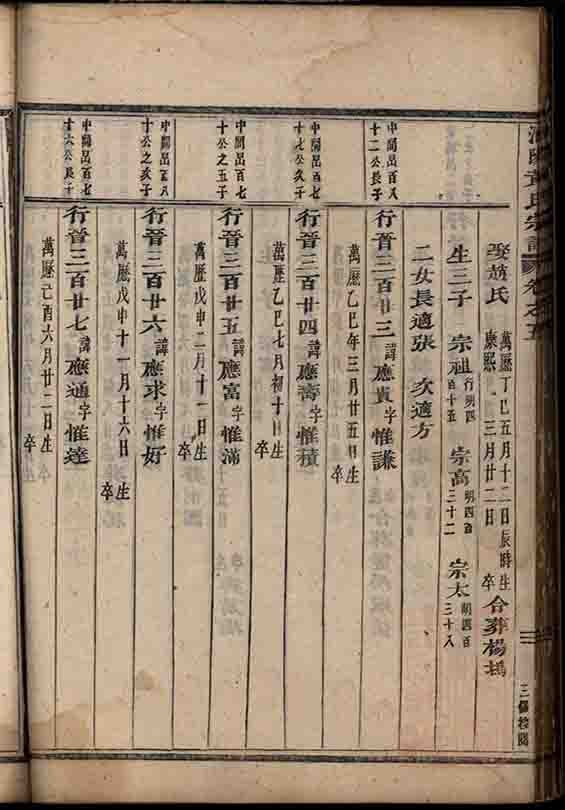 氏宗譜 卷之五
娶趙氏 萬歷丁巳五月十二日辰時生
康熙 三月廿二日 卒 合葬楊塢
生三子 宗祖 行明四百十五 宗高 明四百三十二 宗太 明四百三十八
二女長適張 次適方
中閣邑百八十二公長子
行晉三百廿三 諱應貴 字惟謙
萬歷乙巳年三月廿五日生 卒
中閣邑百七十七公次子
行晉三百廿四 諱應壽 字惟積
萬歷乙巳七月初十日生 卒
中閣邑百七十公之五子
行晉三百廿五 諱應富 字惟滿
萬歷戊申二月十一日生 卒
中閣邑百八十公之長子
行晉三百廿六 諱應求 字惟好
萬歷戊申十一月十六日生 卒
中閣邑百七十六公長子
行晉三百廿七 諱應通 字惟達
萬歷己酉六月廿二日生 卒